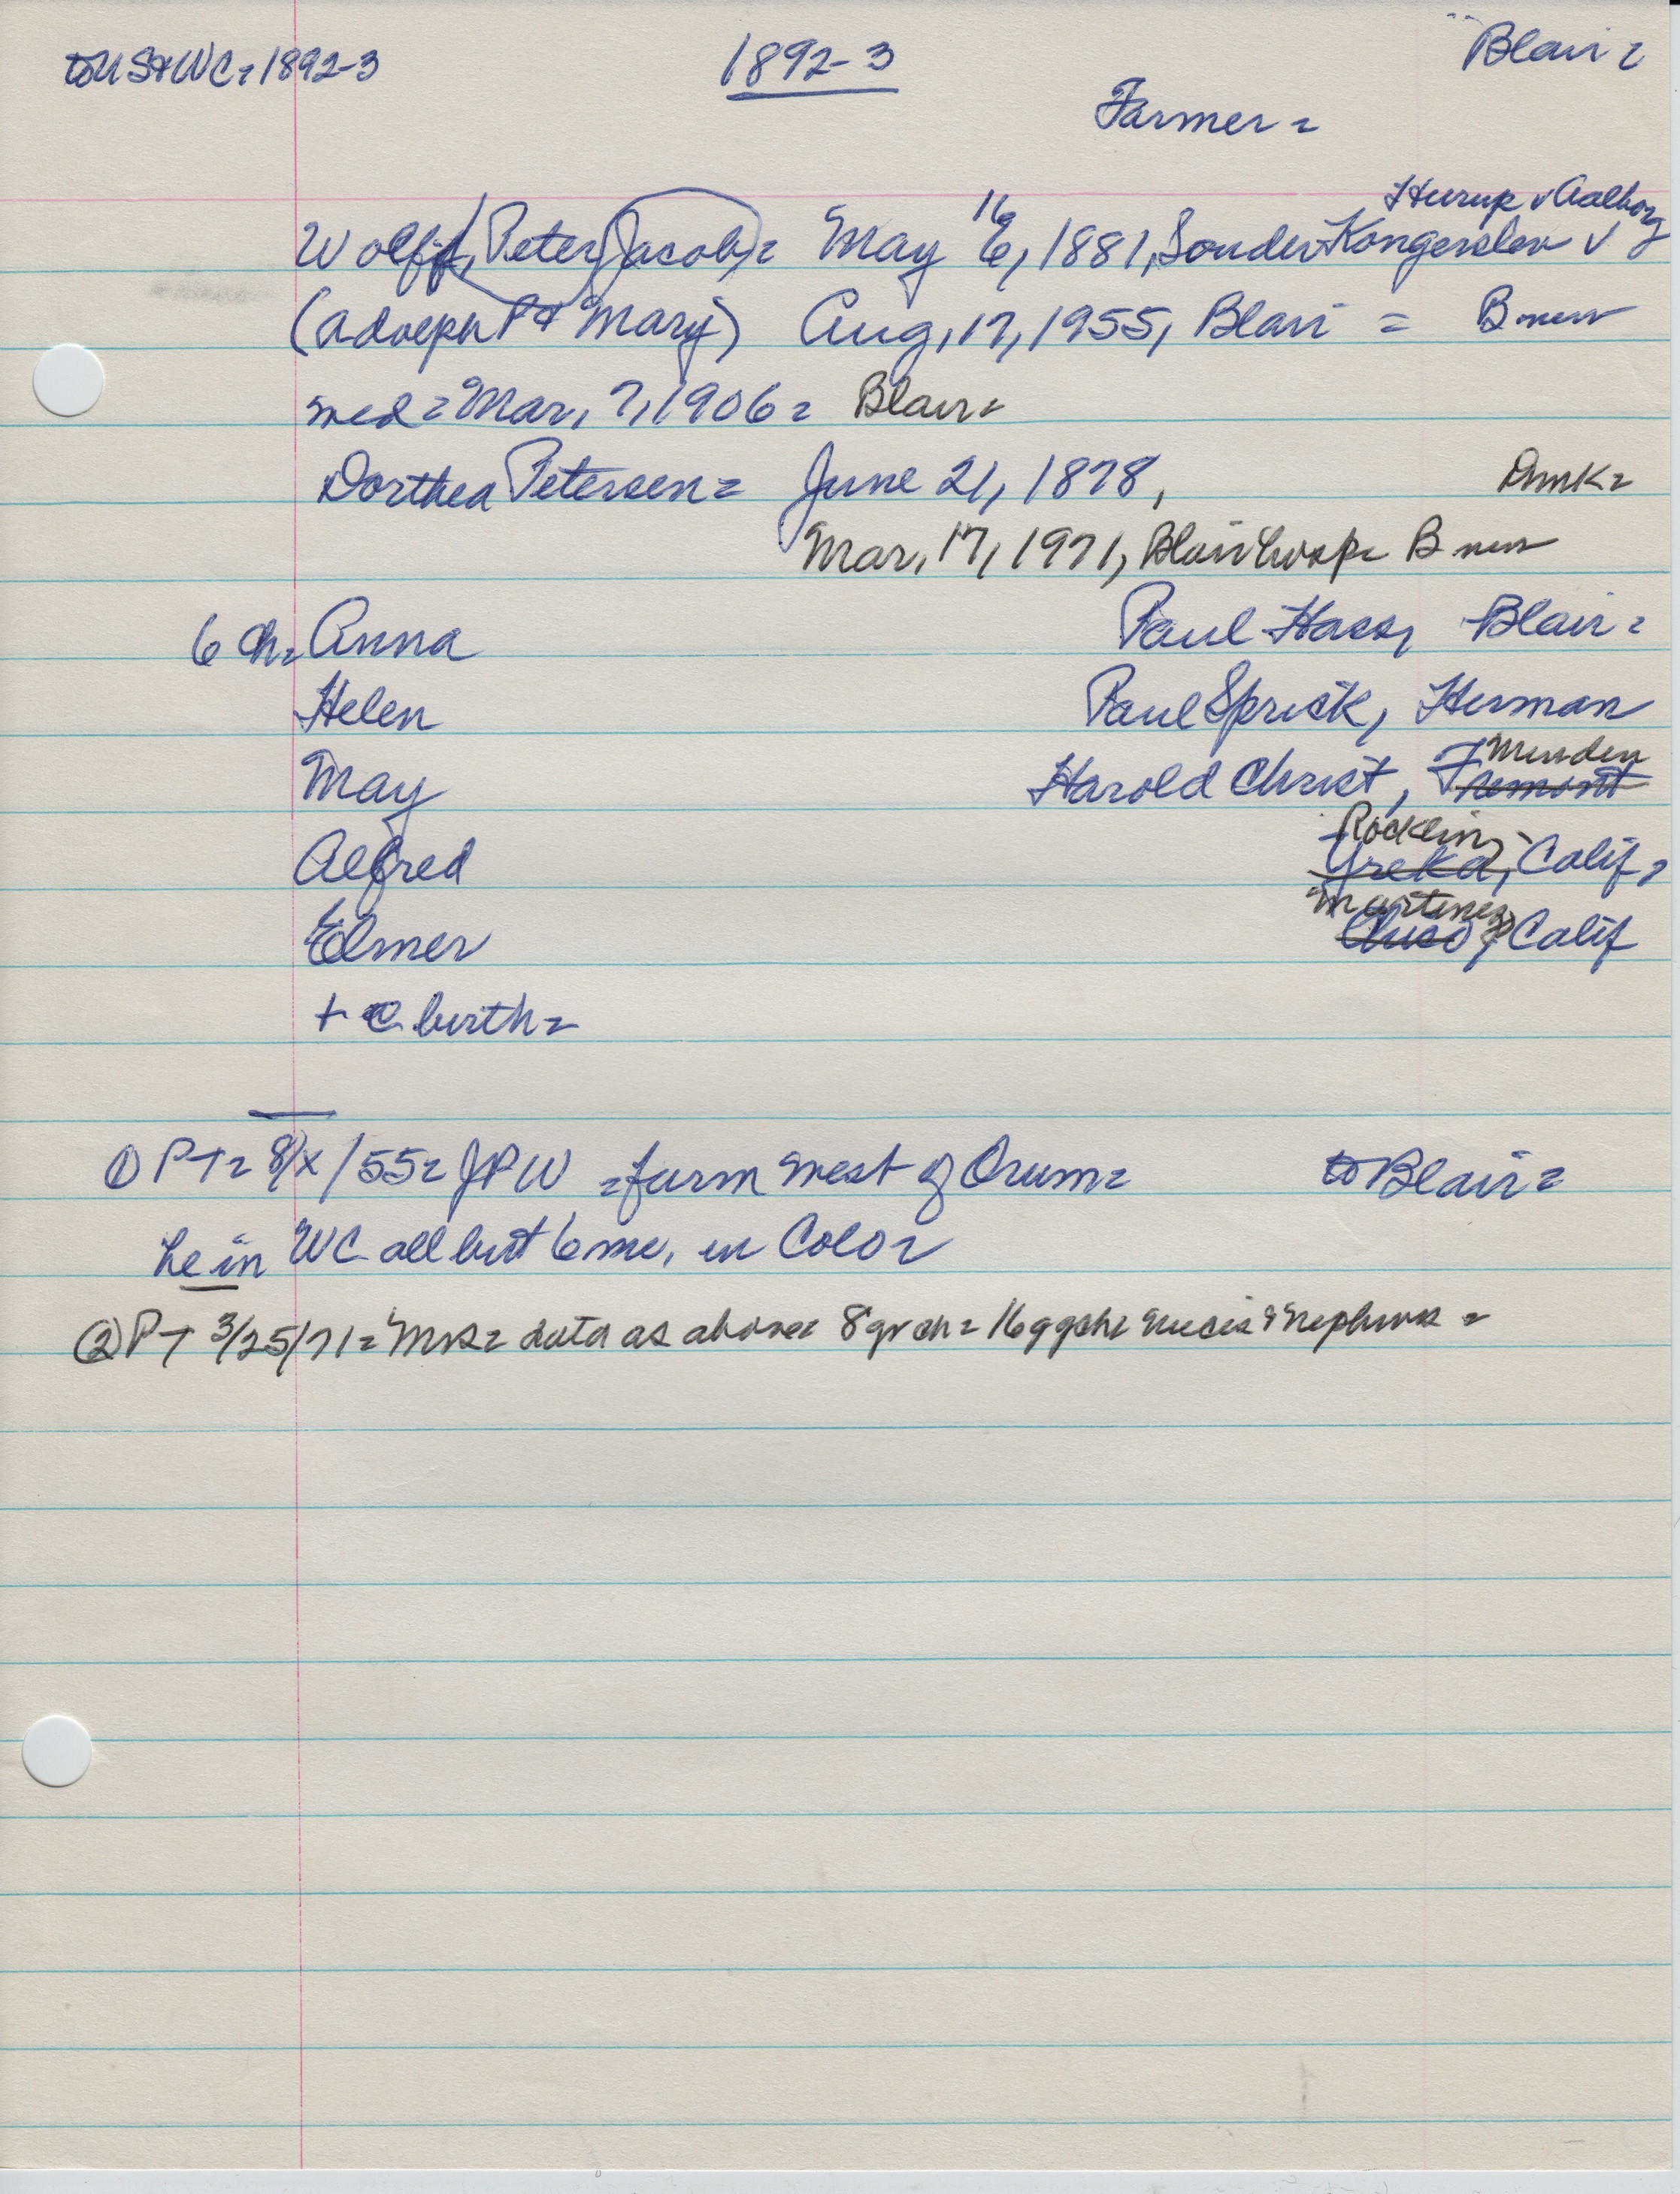 to US & WC = 1892-3 1892-3 Blair =
Farmer =
Hurup v Aalborg
Wolff, Peter Jacob = May 16, 1881, Sonder Kongerslev v
(Adolph P & Mary) Aug, 17, 1955, Blair = B new
med = Mar, 7, 1906 = Blair =
Dorthea Petersen = June 21, 1878, Dmk =
Mar, 17, 1971, Blair hosp = B new
6 ch = Anna Paul Hass, Blair =
Helen Paul Sprick, Herman
Minden
May Harold Christ, Fremont
Rocklin,
Alfred Yreka, Calif,
Martinez
Elmer Chico, Calif
+ @ birth =
① PT = 8/x/55 = JPW = farm west of Orum = to Blair =
he in WC all but 6 mo, in Colo
② PT 3/25/71 = Mrs = data as above = 8 gr ch = 16 ggch = nieces & nephews =